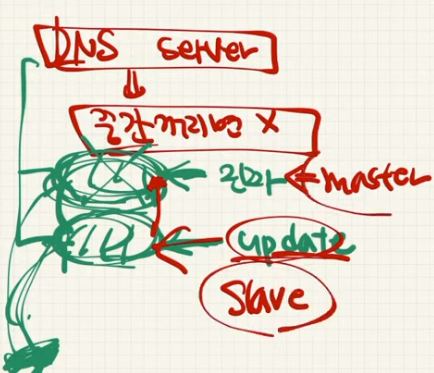 DNS server
중간거리면 X
진짜 master
update
Slave